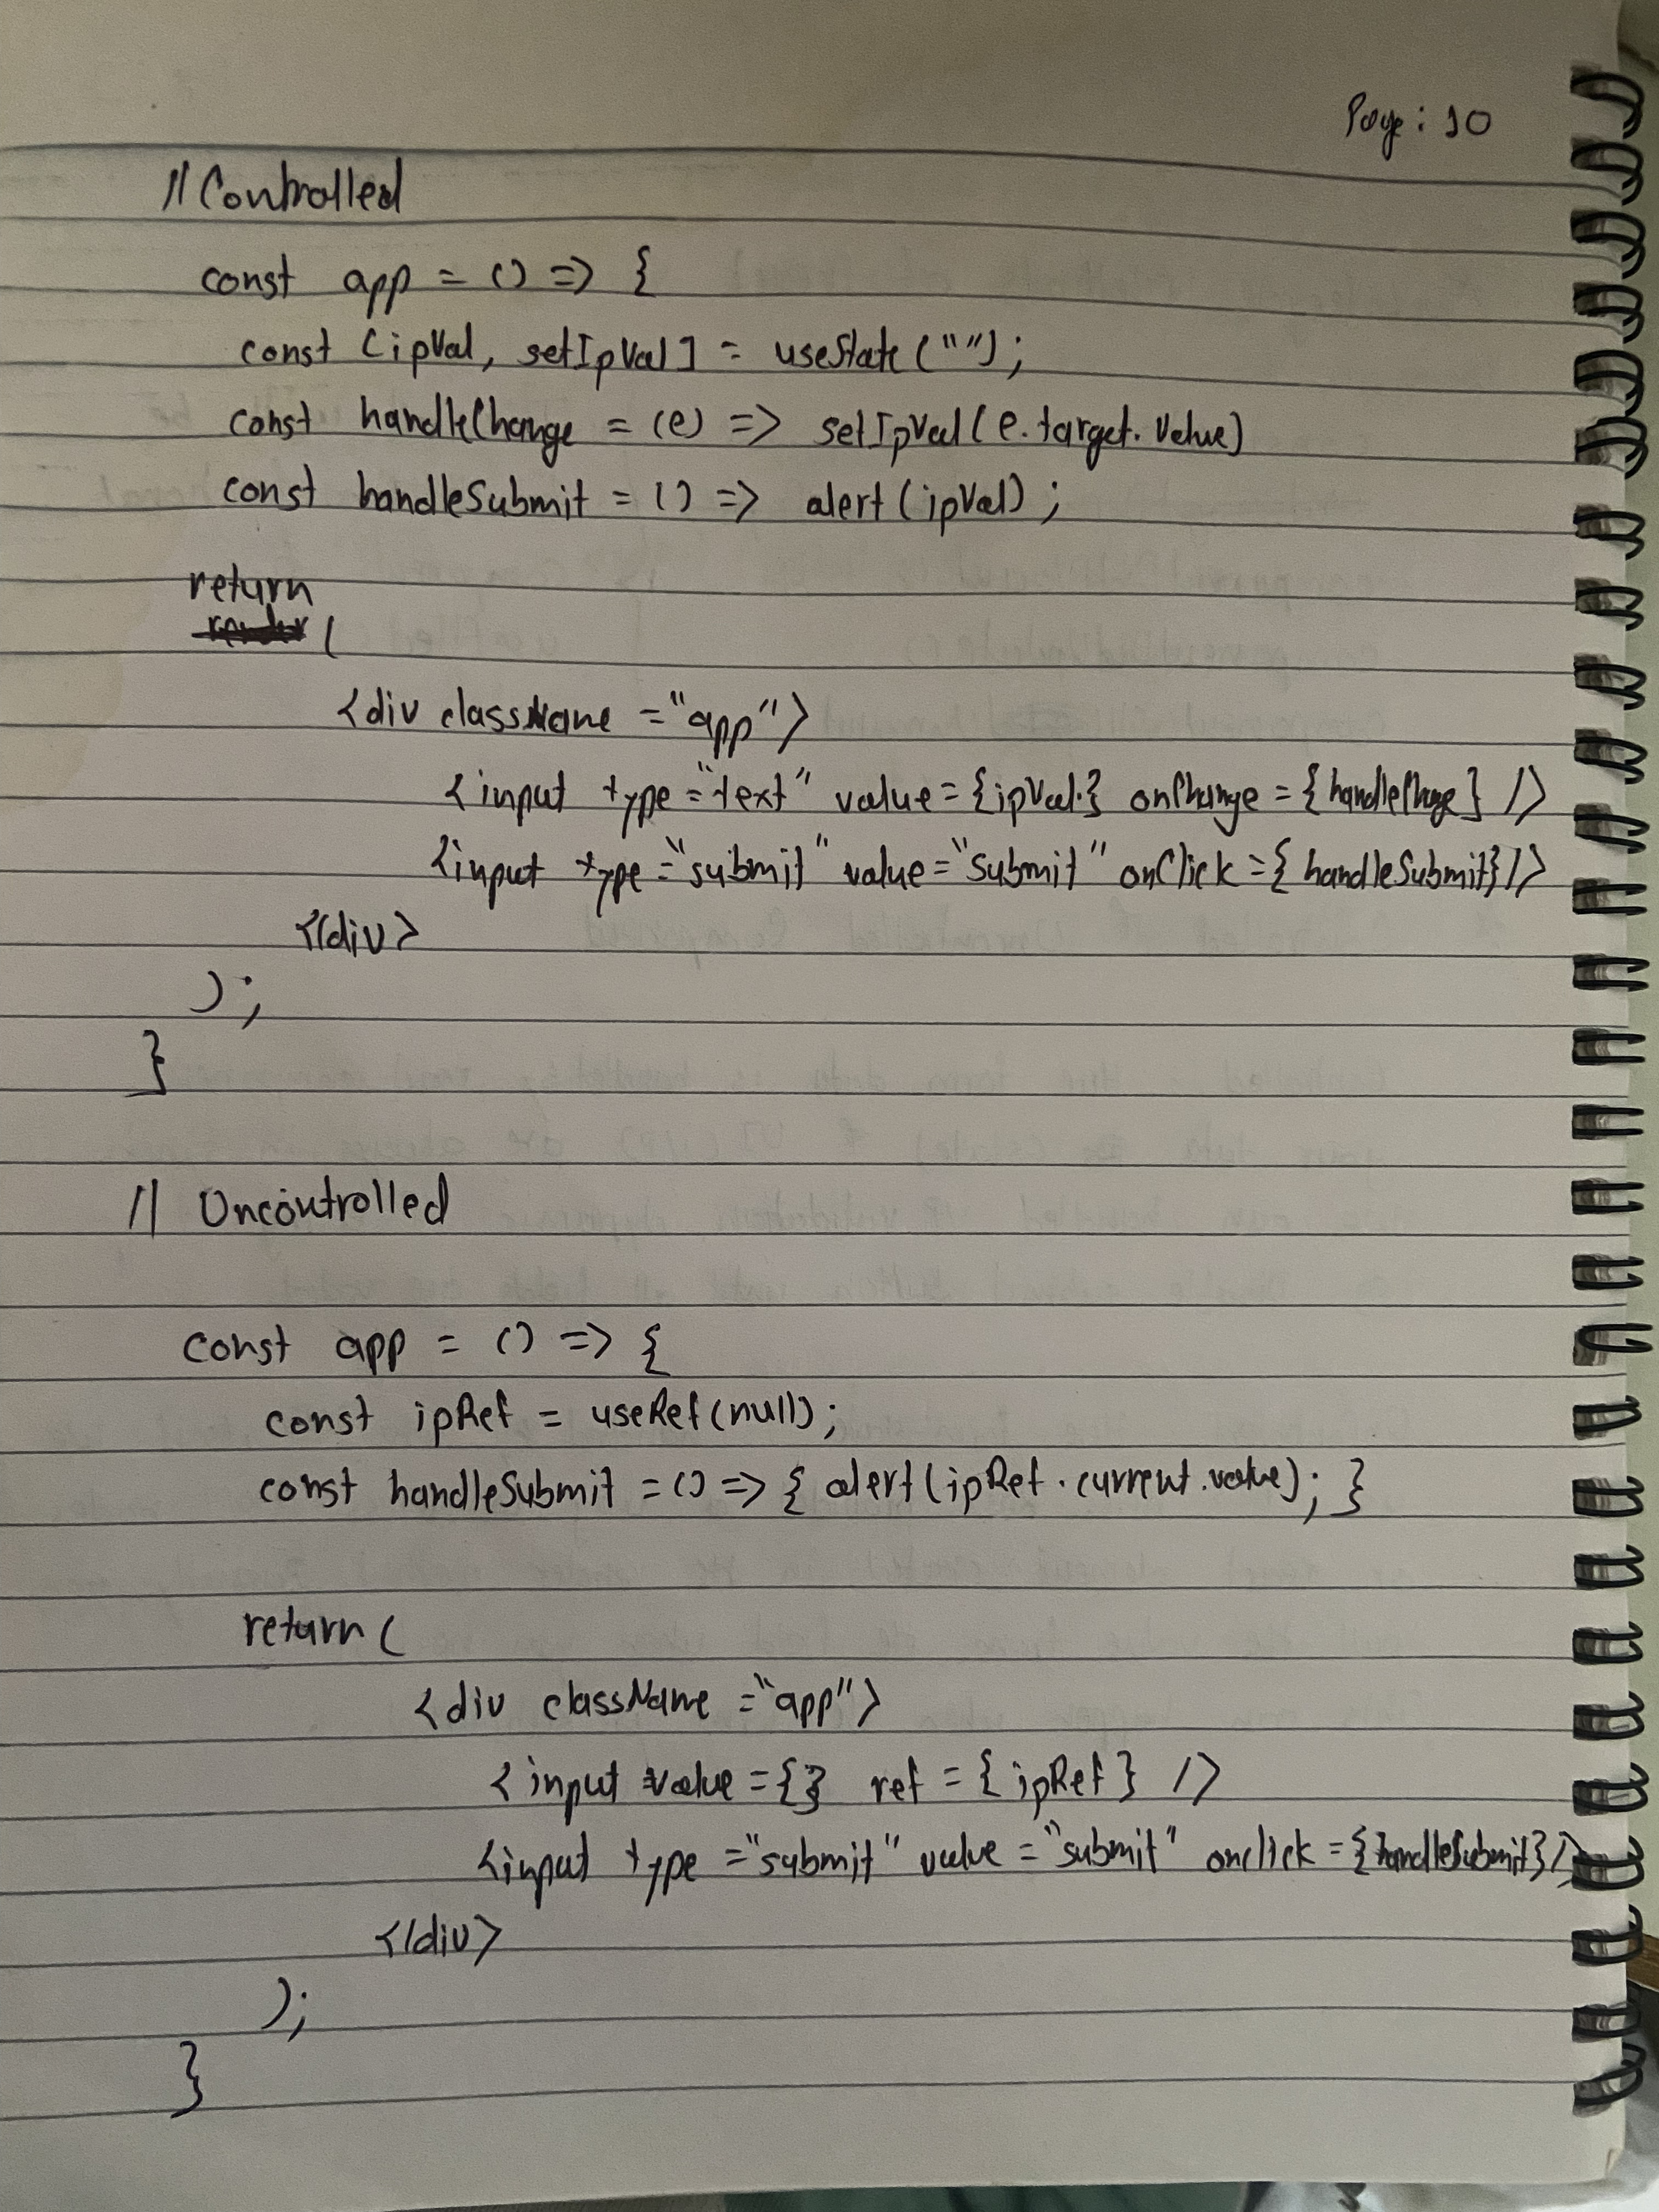 Page: 10
// Controlled
const app = () => {
const [ipVal, setIpVal] = useState("");
const handleChange = (e) => setIpVal(e.target.value)
const handleSubmit = () => alert(ipVal);
return
render (
<div className="app">
<input type="text" value={ipVal} onChange={handleChange} />
<input type="submit" value="Submit" onClick={handleSubmit}/>
</div>
);
}
// Uncontrolled
const app = () => {
const ipRef = useRef(null);
const handleSubmit = () => { alert(ipRef.current.value); }
return (
<div className="app">
<input value={} ref={ipRef} />
<input type="submit" value="submit" onclick={handleSubmit}/>
</div>
);
}